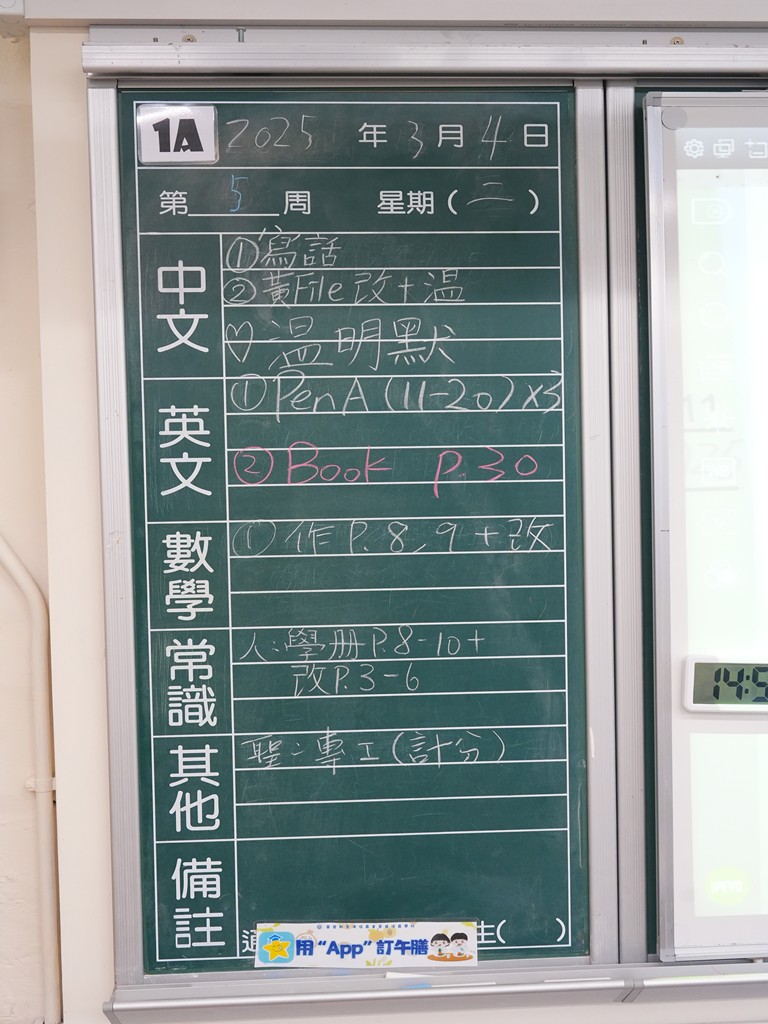 1A 2025年3月4日
第5周 星期(二)
中文
①寫話
②黃File改+温
♡温明默
英文
①PenA(11-20)x3
②Book P.30
數學
①作P.8,9+改
常識
人:學册P.8-10+
改P.3-6
其他
聖:專工(計分)
備註
生( )
用“App”訂午膳
14:5